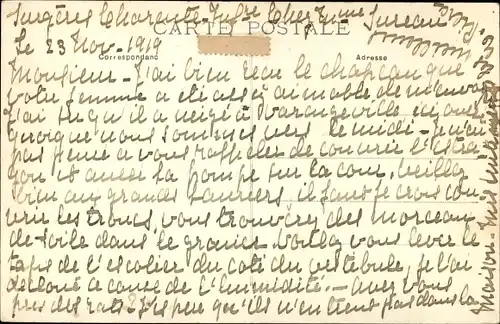 Surgères Charente-Infre Chez Mme Sureau
CARTE POSTALE
Le 23 Nov. 1919
Correspondance
Adresse
Monsieur - J'ai bien reçu le chapeau que
votre femme a été assez aimable de m'envoyer
J'ai su qu'il a neigé à Varangeville, ici aussi
quoique nous sommes vers le midi - je n'ai
pas pensé a vous rappeler de couvrir l'estra
gon et aussi la pompe sur la cour, veillez
bien aux grands lauriers, il faut je crois cou
vrir les troncs, vous trouverez des morceaux
de toile dans le grenier. Voulez vous lever le
tapis de l'escalier du côté du vestibule, je l'ai
décloué a cause de l'humidité. - Avez vous
pris des rats? J'espère qu'ils n'entrent pas dans la
maison -